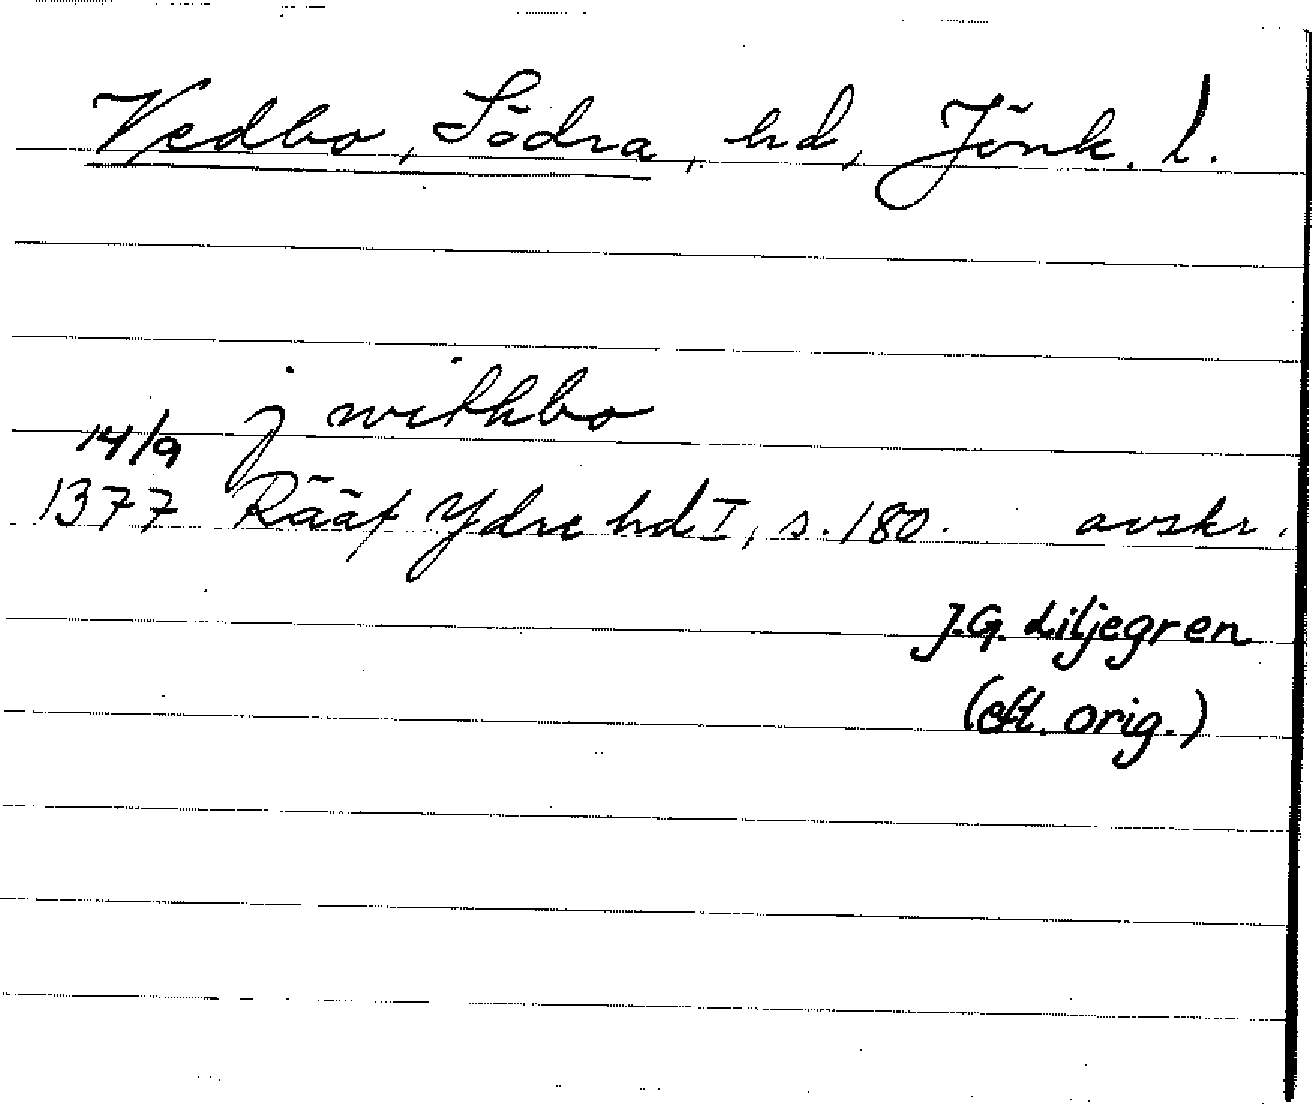 Vedbo, Södra, hd, Jönk. l.
j withbo
14/9
1377 Rääf Ydre hd I, s. 180. avskr.
J.G. Liljegren
(eft. orig.)